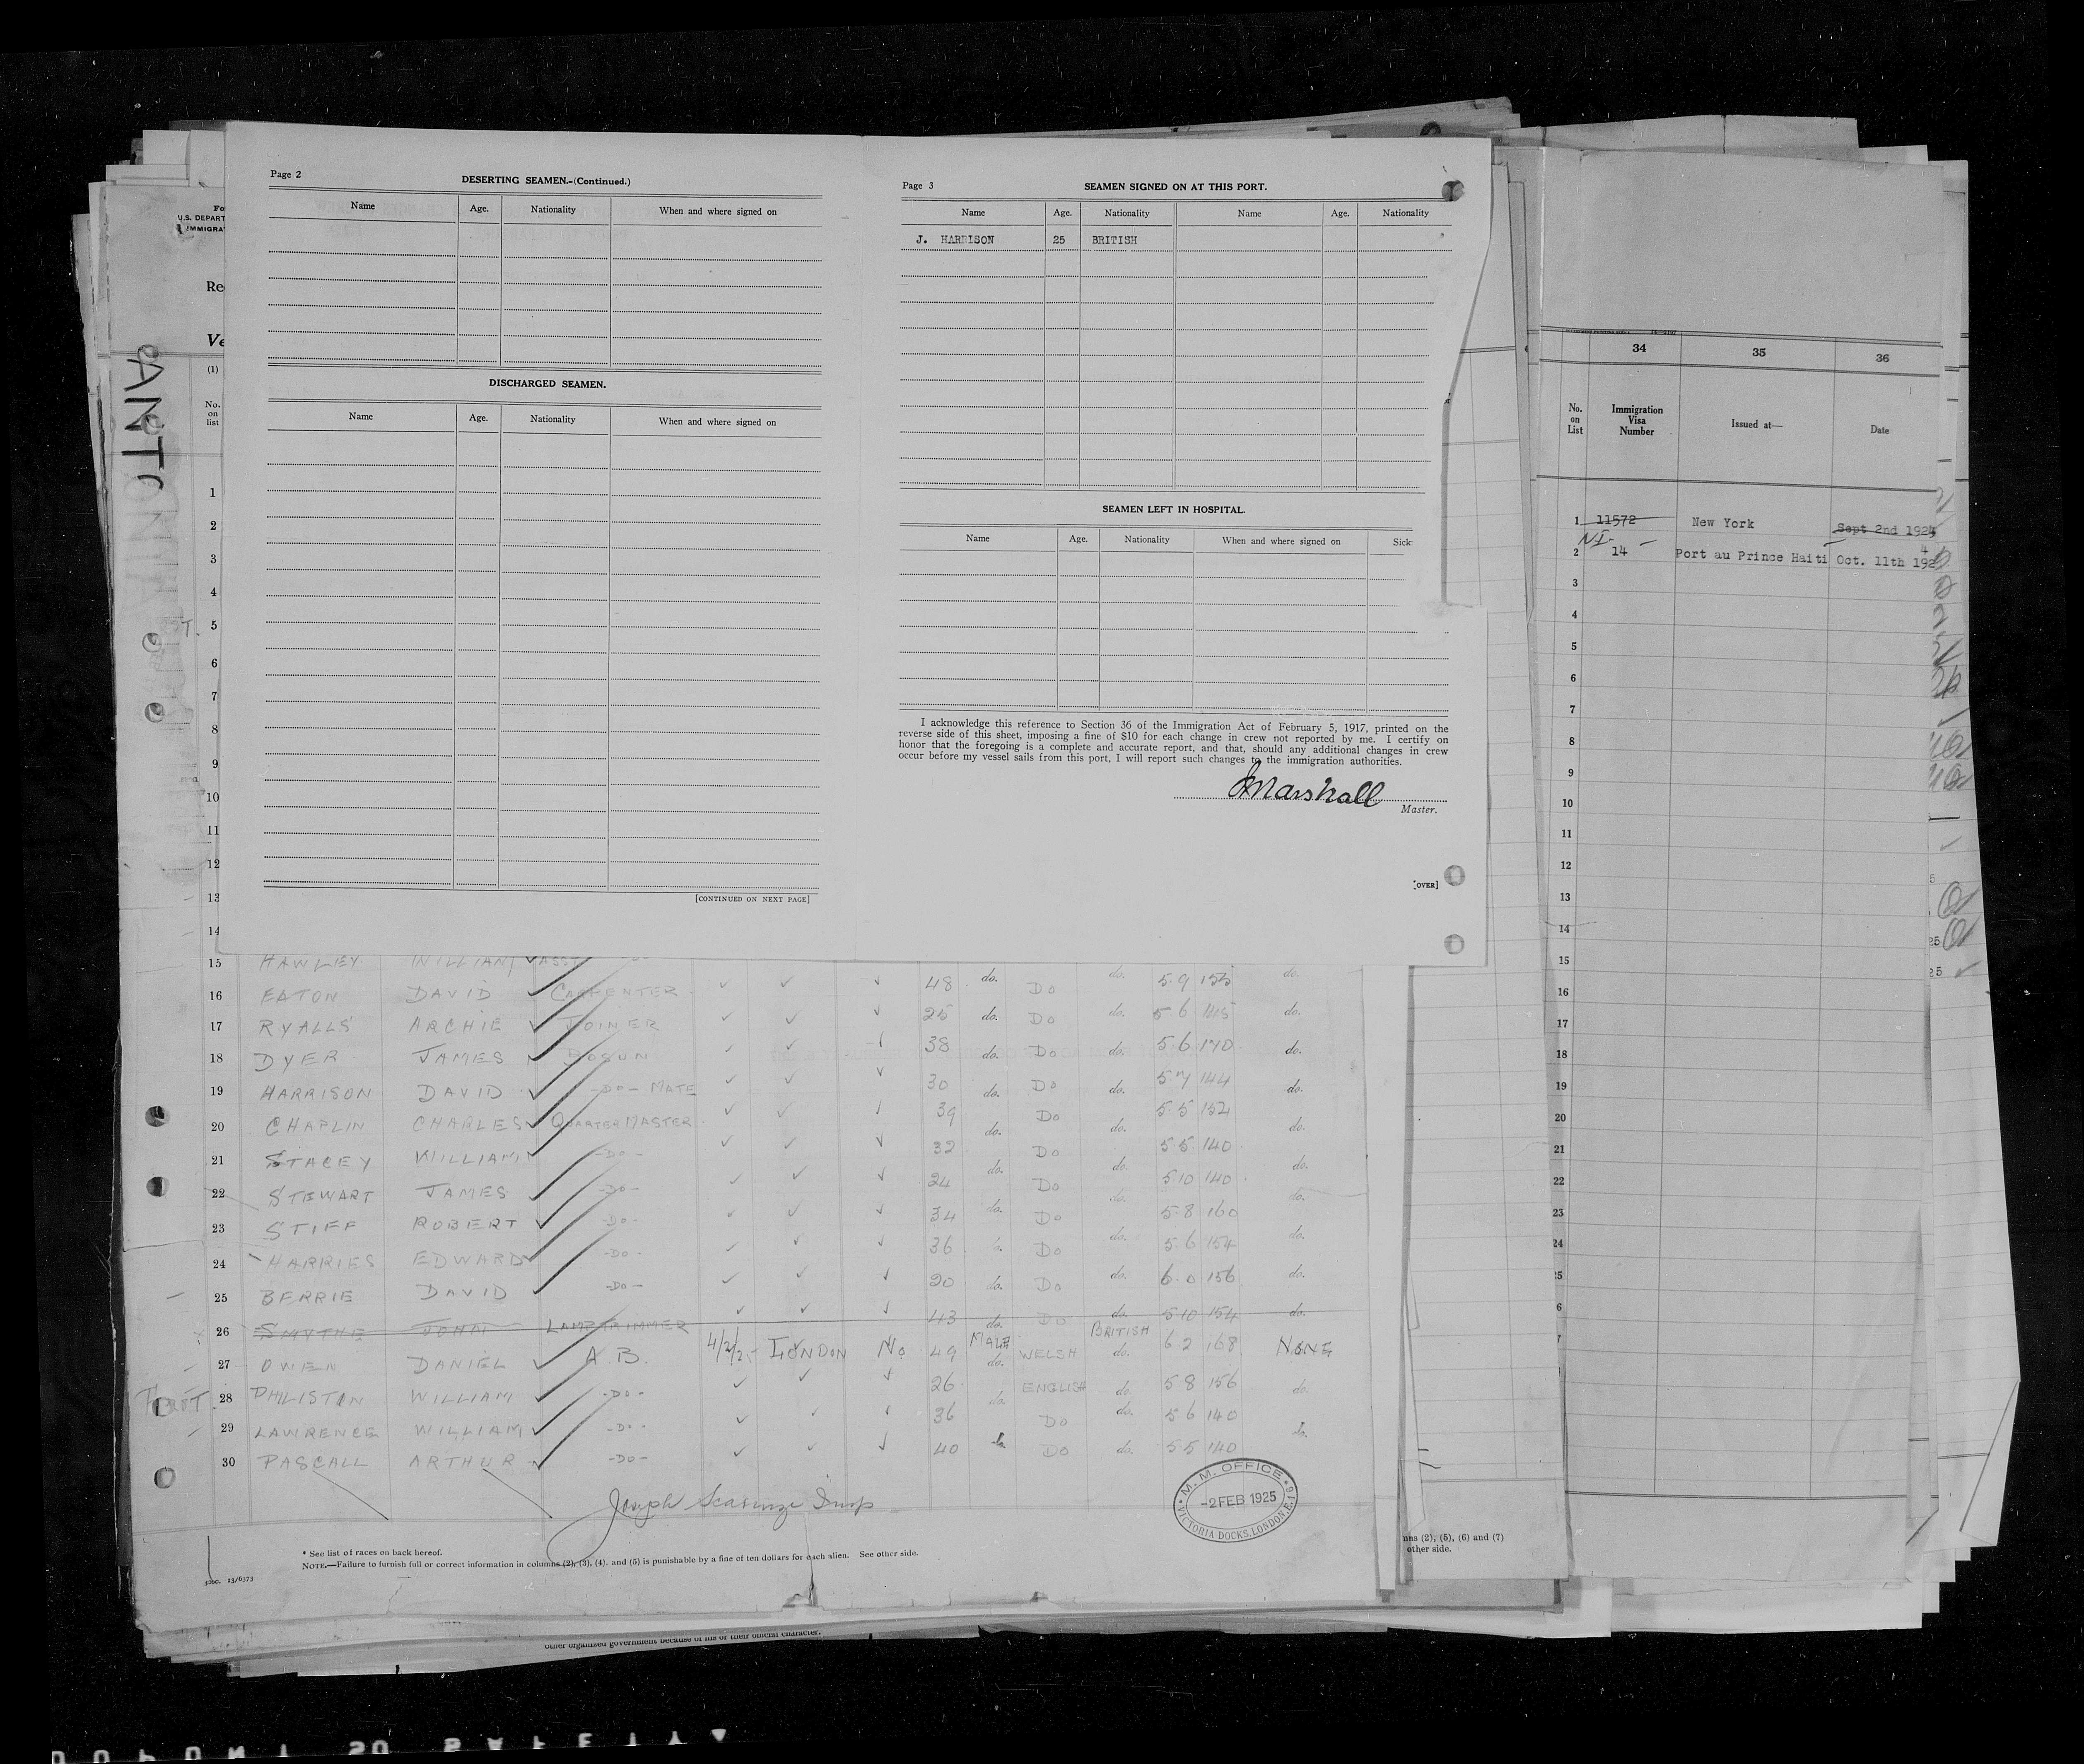 Page 2
DESERTING SEAMEN.-(Continued.)
Name Age. Nationality When and where signed on
DISCHARGED SEAMEN.
Name Age. Nationality When and where signed on
[CONTINUED ON NEXT PAGE]
Page 3
SEAMEN SIGNED ON AT THIS PORT.
Name Age. Nationality Name Age. Nationality
J. HARRISON 25 BRITISH
SEAMEN LEFT IN HOSPITAL.
Name Age. Nationality When and where signed on Sick
I acknowledge this reference to Section 36 of the Immigration Act of February 5, 1917, printed on the
reverse side of this sheet, imposing a fine of $10 for each change in crew not reported by me. I certify on
honor that the foregoing is a complete and accurate report, and that, should any additional changes in crew
occur before my vessel sails from this port, I will report such changes to the immigration authorities.
JMarshall
Master.
[OVER]
Fo
U.S. DEPART
IMMIGRA
Re
Ve
(1)
No.
on
list
1
2
3
4
5
6
7
8
9
10
11
12
13
14
15 HAWLEY WILLIAM ASST
16 EATON DAVID CARPENTER 48 do. Do do. 5 9 155 do.
17 RYALLS ARCHIE JOINER 25 do. Do do. 5 6 145 do.
18 DYER JAMES BOSUN 38 do. Do do. 5 6 170 do.
19 HARRISON DAVID -Do- MATE 30 do. Do do. 5 7 144 do.
20 CHAPLIN CHARLES QUARTERMASTER 39 do. Do do. 5 5 152 do.
21 STACEY WILLIAM -Do- 32 do. Do do. 5 5 140 do.
22 STEWART JAMES -Do- 24 do. Do do. 5 10 140 do.
23 STIFF ROBERT -Do- 34 do. Do do. 5 8 160 do.
24 HARRIES EDWARD -Do- 36 do. Do do. 5 6 154 do.
25 BERRIE DAVID -Do- 20 do. Do do. 6 0 156 do.
26 SMYTHE JOHN LAMPTRIMMER 43 do. Do do. 5 10 154 do.
27 OWEN DANIEL A.B. 4/2/25 LONDON No 49 MALE do. WELSH BRITISH do. 6 2 168 NONE
28 PHILISTIN WILLIAM -Do- 26 do. ENGLISH do. 5 8 156 do.
29 LAWRENCE WILLIAM -Do- 36 Do do. 5 6 140 do.
30 PASCALL ARTHUR -Do- 40 do. Do do. 5 5 140
M. M. OFFICE
-2 FEB 1925
VICTORIA DOCKS, LONDON, E.16
* See list of races on back hereof.
NOTE.—Failure to furnish full or correct information in columns (2), (3), (4), and (5) is punishable by a fine of ten dollars for each alien. See other side.
13/6373
other organized government because of his or their official character.
nns (2), (5), (6) and (7)
other side.
34 35 36
No.
on
List
Immigration
Visa
Number
Issued at—
Date
1 11572 New York Sept 2nd 1924
NI-
2 14 Port au Prince Haiti Oct. 11th 192
4
3
4
5
6
7
8
9
10
11
12
13
14
15
16
17
18
19
20
21
22
23
24
25
6
7